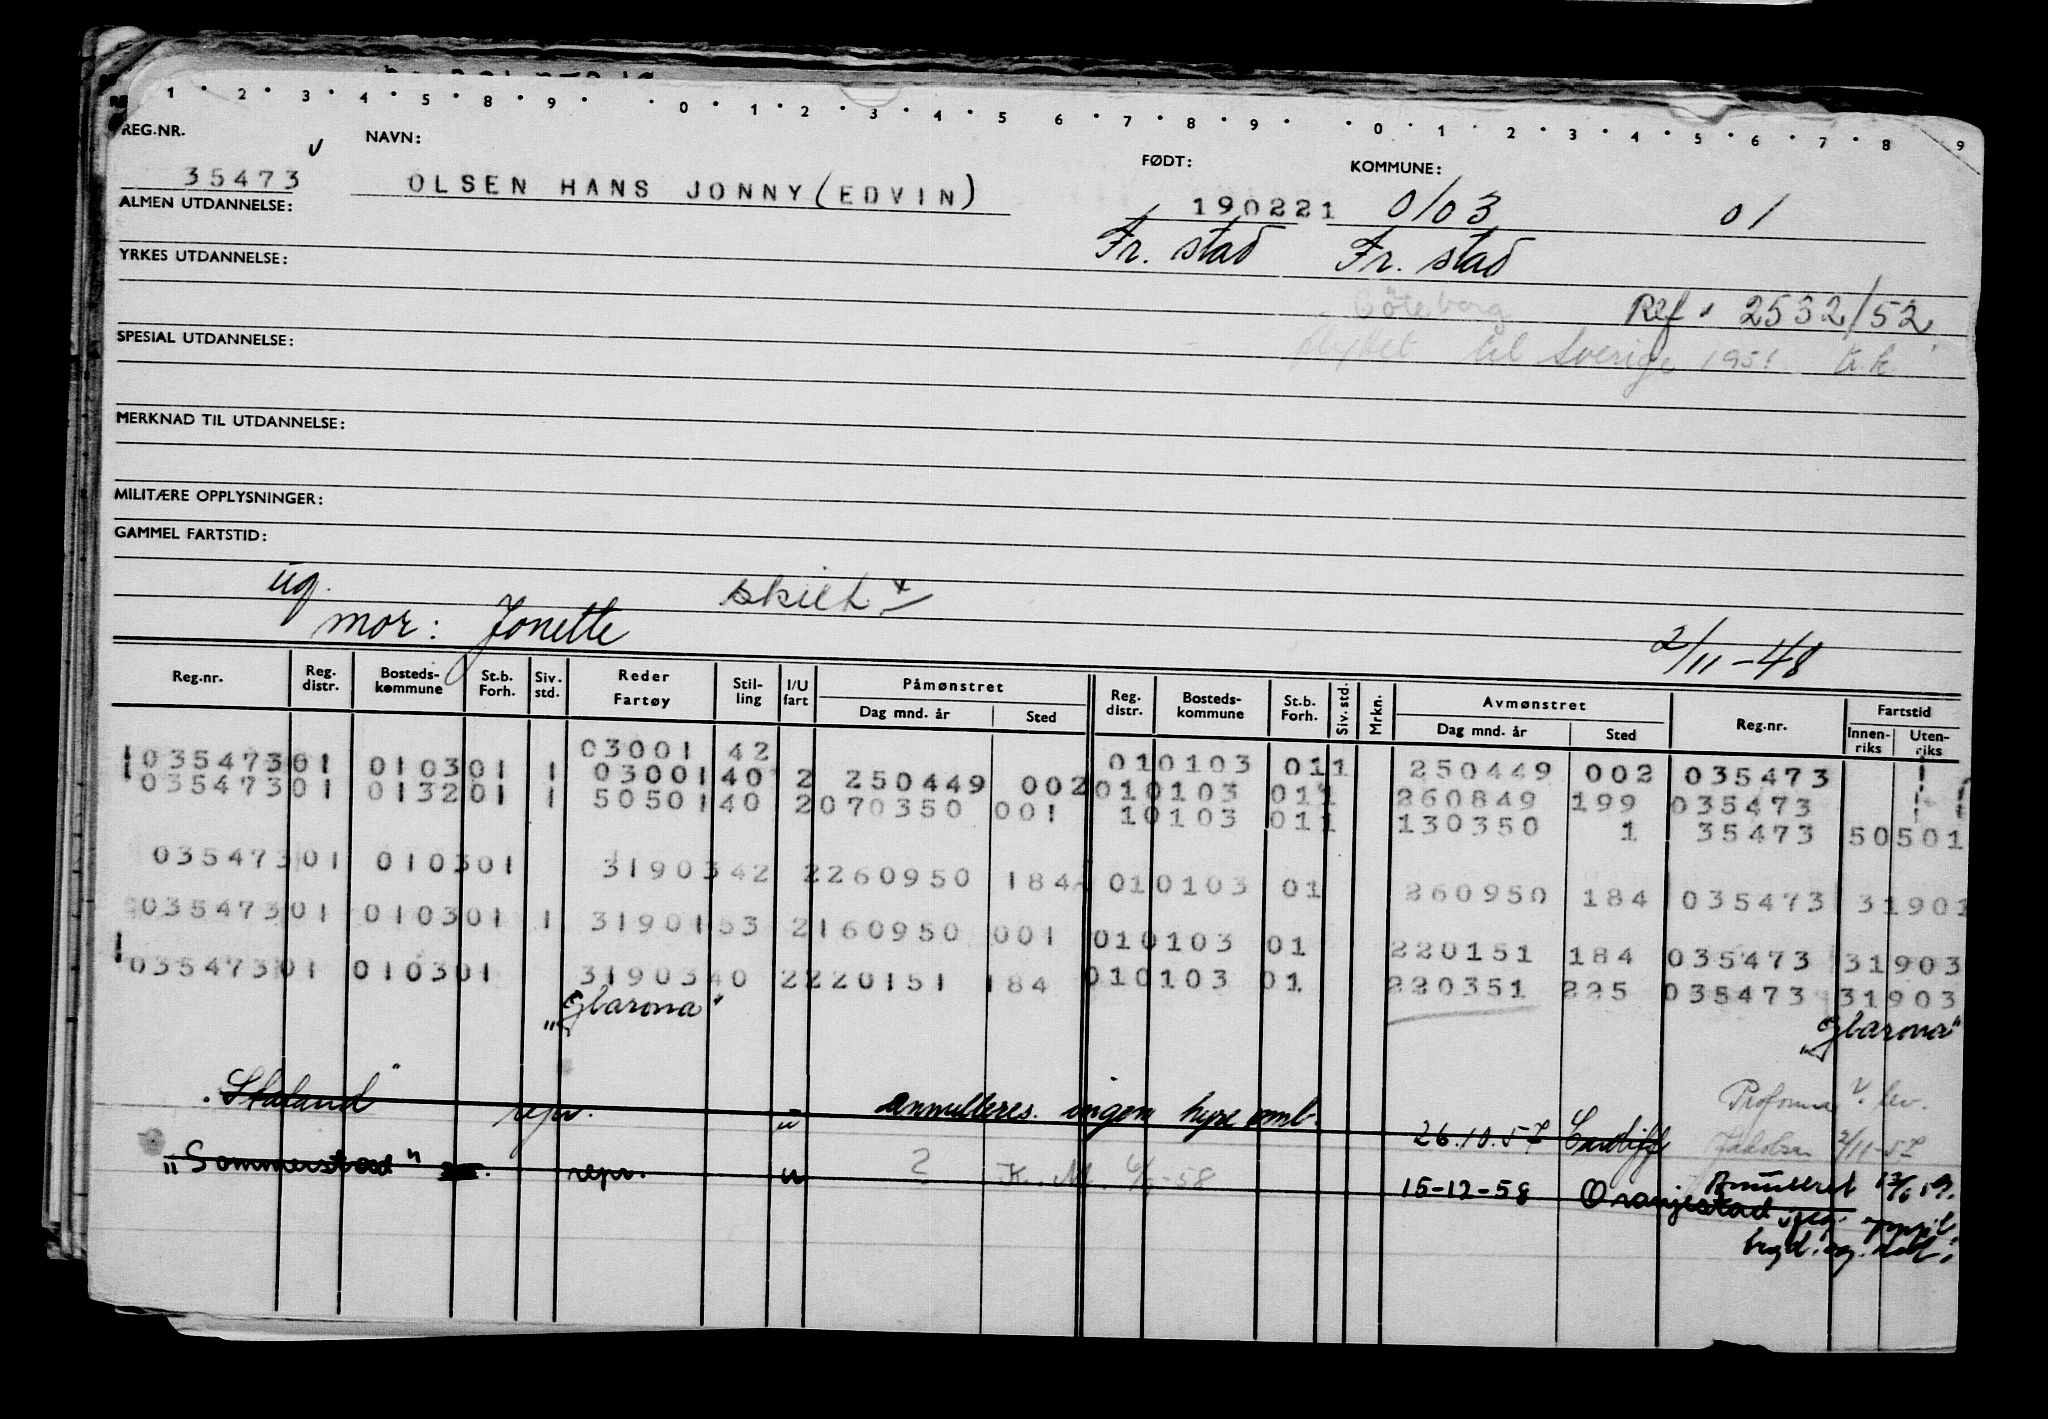 1 · 2 · 3 · 4 · 5 · 8 · 9 · · 0 · 1 · 2 · 3 · 4 · 5 6 · 7 · 8 · 9 · · 0 · 1 · 2 · 3 · 4 · 5 · 6 · 7 · 8 9
REG.NR. NAVN: FØDT: KOMMUNE:
35473 OLSEN HANS JONNY (EDVIN) 190221 0103 01
ALMEN UTDANNELSE: Fr. stad Fr. stad
YRKES UTDANNELSE:
Göteborg Ref. 2532/52
SPESIAL UTDANNELSE: flyttet til Sverige 1951
MERKNAD TIL UTDANNELSE:
MILITÆRE OPPLYSNINGER:
GAMMEL FARTSTID:
ug. skilt
mor: Jonette 2/11-48
Reg.nr. Reg. distr. Bosteds-kommune St.b. Forh. Siv. std. Reder Fartøy Stil-ling I/U fart Påmønstret Dag mnd. år Sted Reg. distr. Bosteds-kommune St.b. Forh. Siv. std. Mrkn. Avmønstret Dag mnd. år Sted Reg.nr. Fartstid Innen-riks Uten-riks
03001 42 010103 011 250449 002 035473
035473 01 0103 01 1 03001 40 2 250449 002 010103 011 260849 199 035473
035473 01 0132 01 1 50501 40 2 070350 001 10103 011 130350 1 35473 50501
035473 01 0103 01 31903 42 2 260950 184 010103 01 260950 184 035473 31901
035473 01 0103 01 1 31901 53 2 160950 001 010103 01 220151 184 035473 31903
035473 01 0103 01 31903 40 2 220151 184 010103 01 220351 225 035473 31903
"Glarona" "Glarona"
"Skaland" repr. u annulleres. ingen hyre omb. 26.10.57 Cardiff Proforma
2/11-57
"Sommerstad" repr. u 2 K. M. 15-12-58 Oranjestad Annulleret